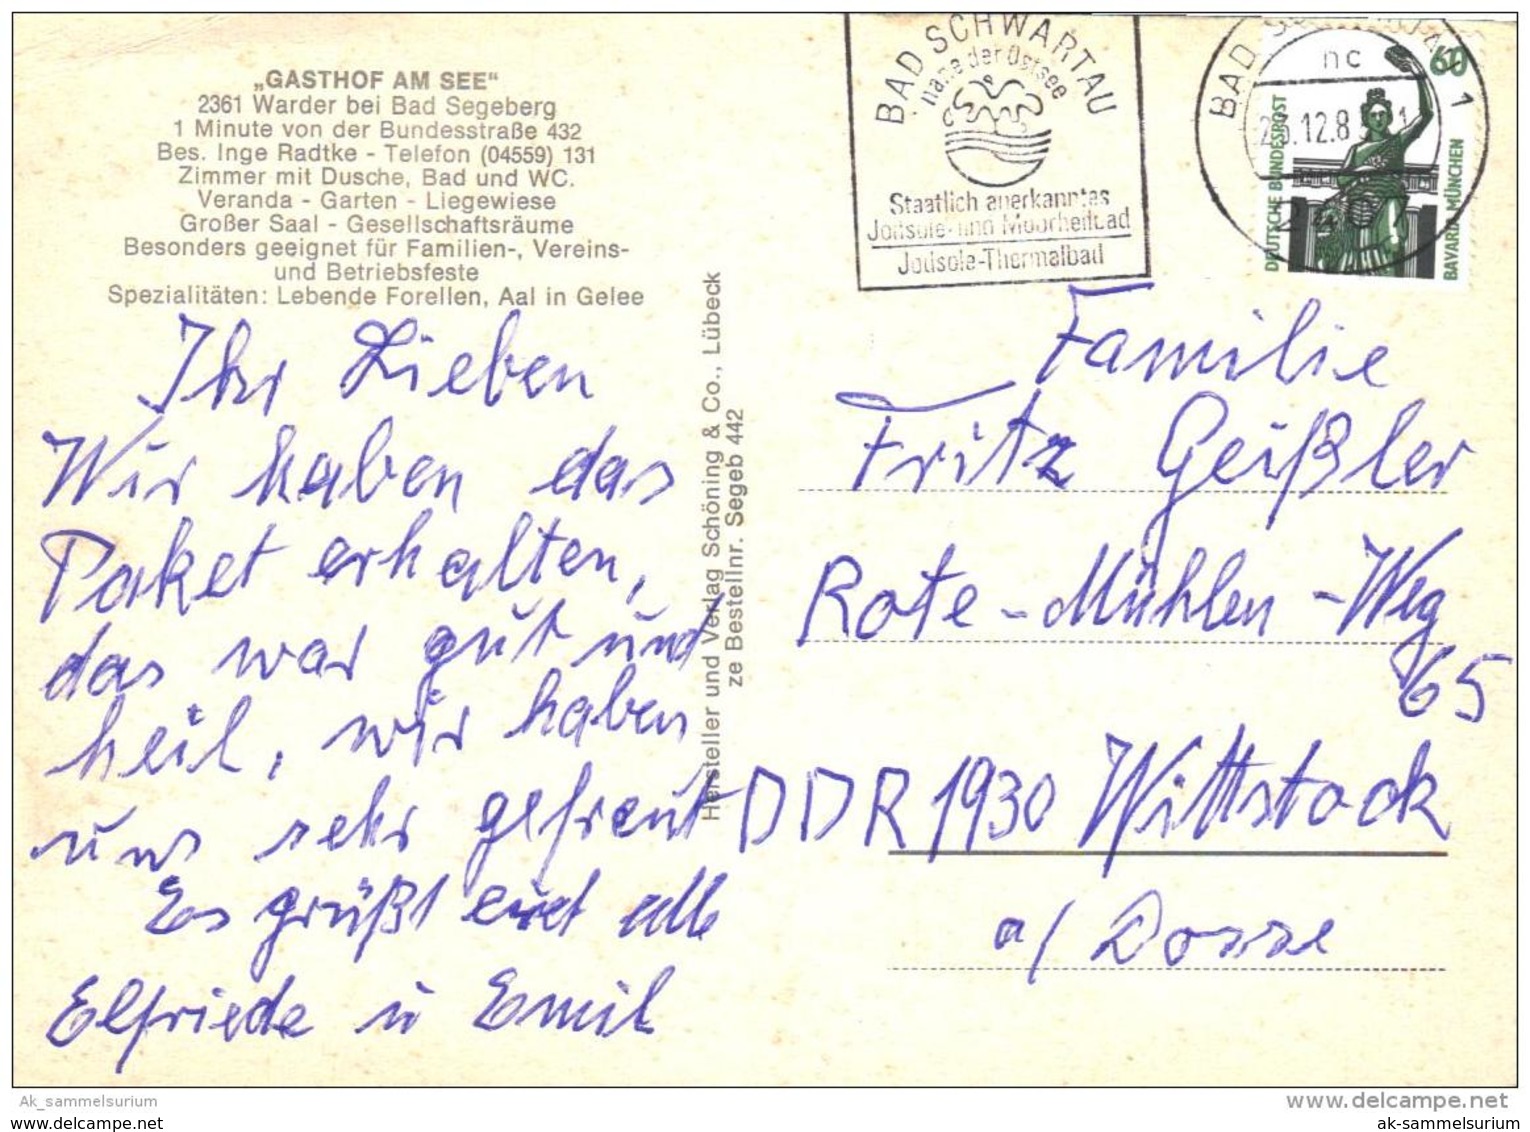 „GASTHOF AM SEE“
2361 Warder bei Bad Segeberg
1 Minute von der Bundesstraße 432
Bes. Inge Radtke - Telefon (04559) 131
Zimmer mit Dusche, Bad und WC.
Veranda - Garten - Liegewiese
Großer Saal - Gesellschaftsräume
Besonders geeignet für Familien-, Vereins-
und Betriebsfeste
Spezialitäten: Lebende Forellen, Aal in Gelee
Ihr Lieben
Wir haben das
Paket erhalten,
das war gut und
heil, wir haben
uns sehr gefreut
Es grüßt euch alle
Elfriede u Emil
Hersteller und Verlag Schöning & Co., Lübeck
ze Bestellnr. Segeb 442
BAD SCHWARTAU
nahe der Ostsee
Staatlich anerkanntes
Jodsole- und Moorheilbad
Jodsole-Thermalbad
BAD
1
nc
.12.8
60
DEUTSCHE BUNDESPOST
BAVARIA MÜNCHEN
Familie
Fritz Geißler
Rote-Mühlen-Weg
65
DDR 1930 Wittstock
a/ Dosse
Ak_sammelsurium
www.delcampe.net
www.delcampe.net
ak-sammelsurium